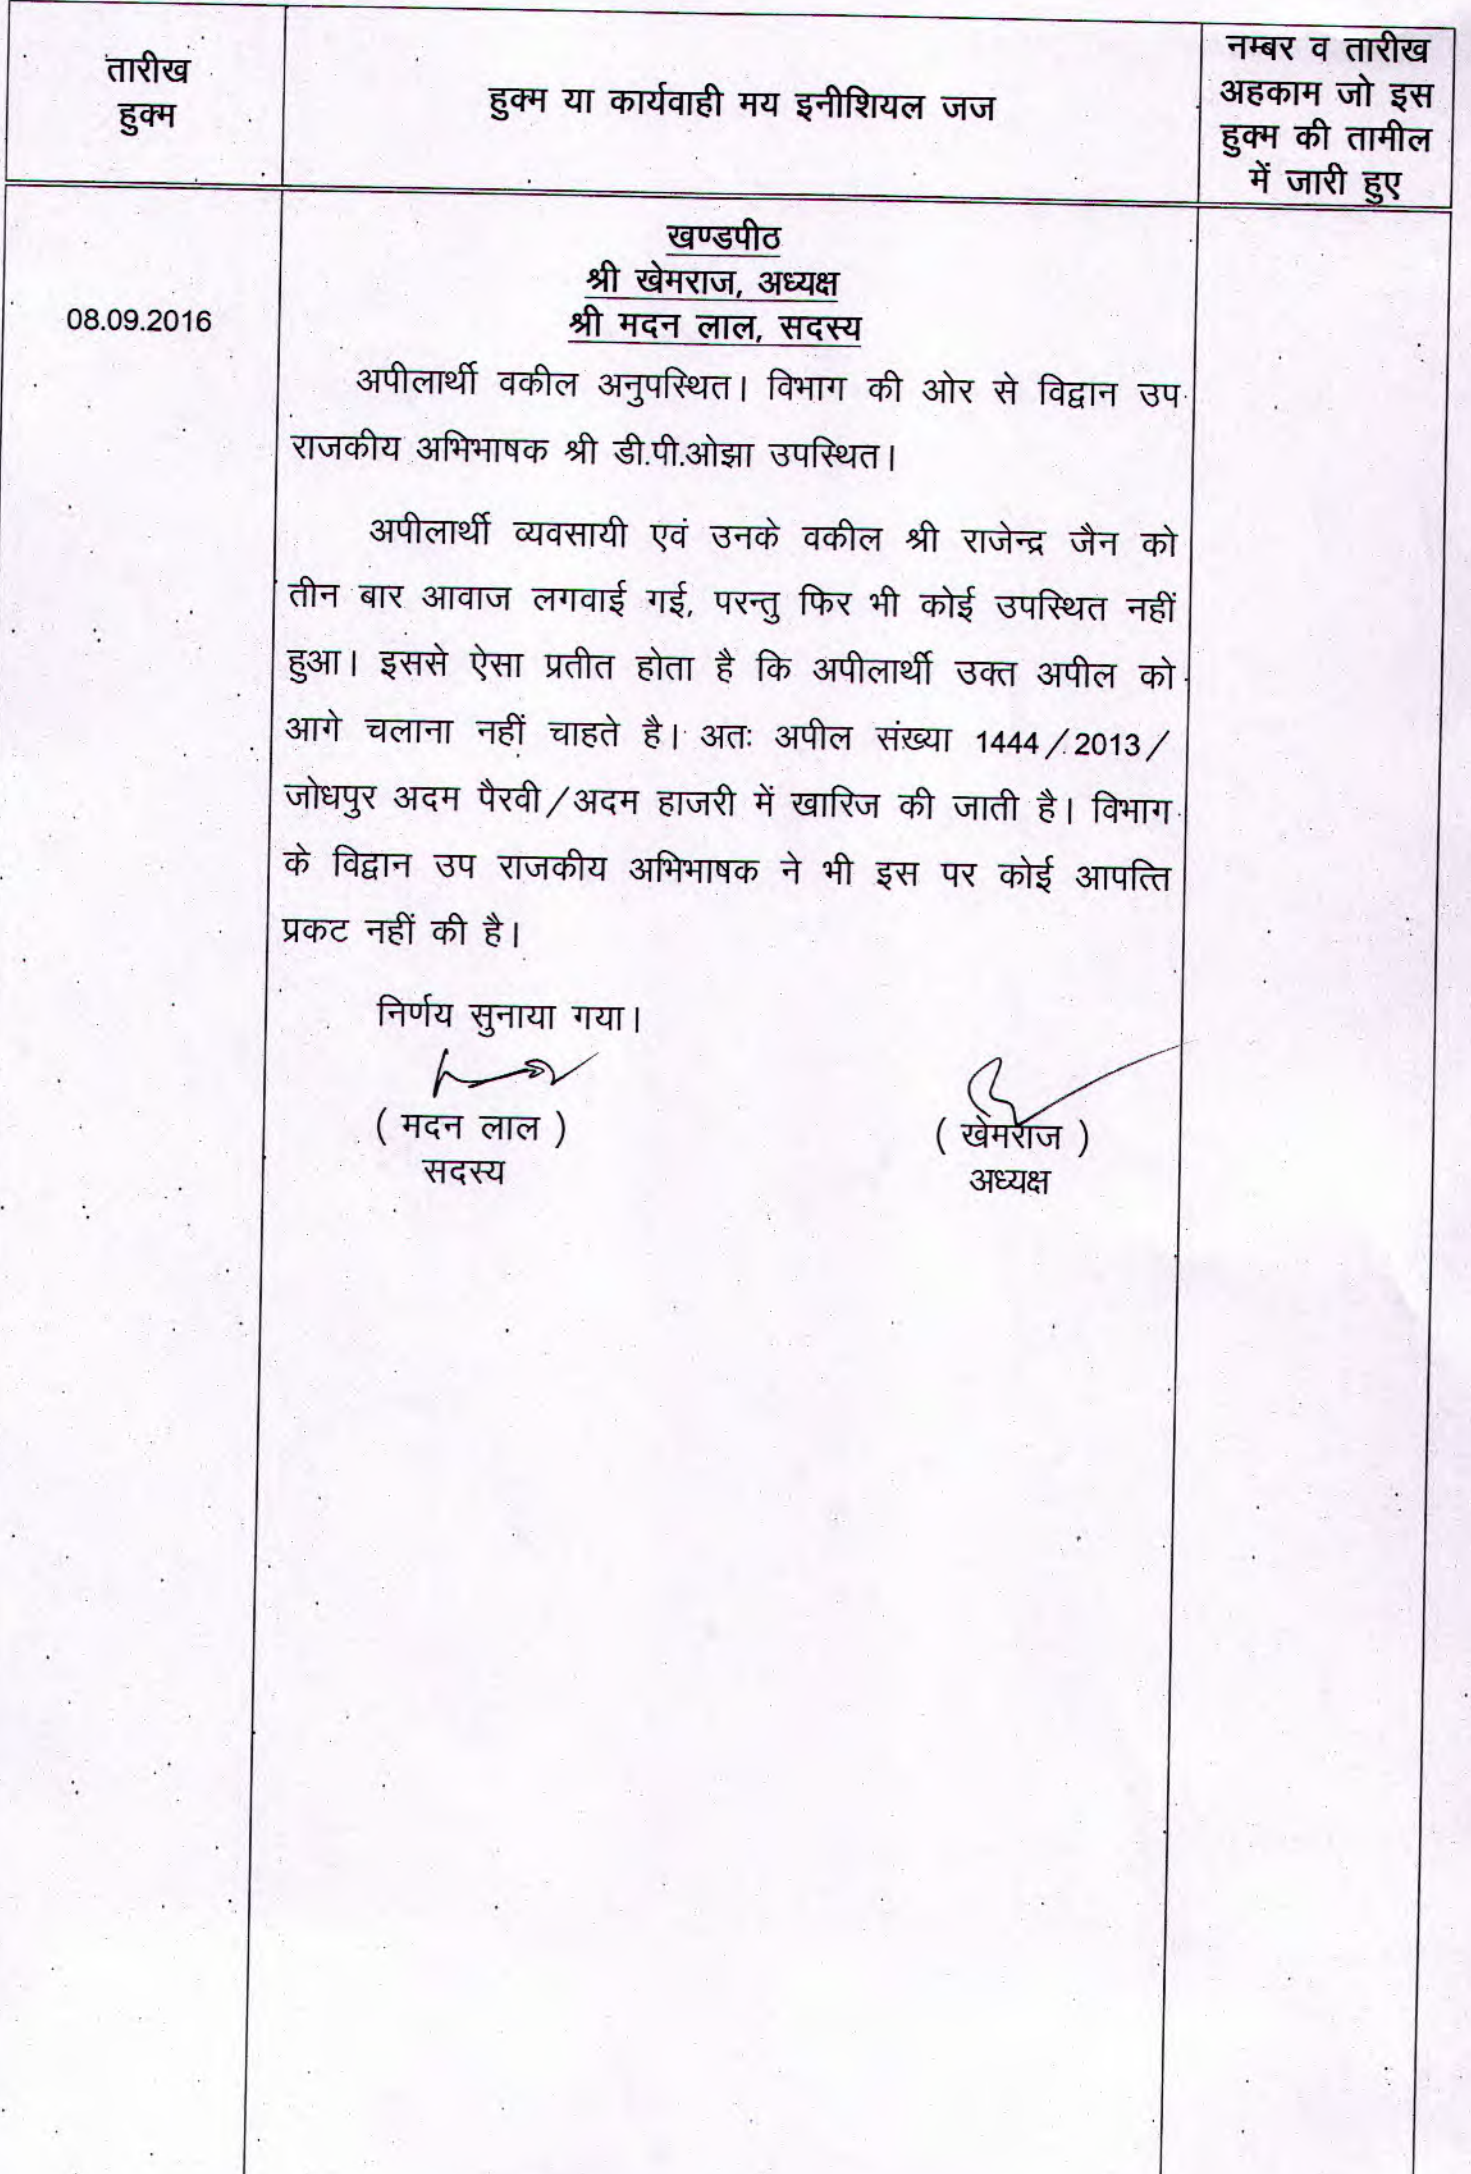 तारीख
हुक्म
हुक्म या कार्यवाही मय इनीशियल जज
नम्बर व तारीख
अहकाम जो इस
हुक्म की तामील
में जारी हुए
08.09.2016
खण्डपीठ
श्री खेमराज, अध्यक्ष
श्री मदन लाल, सदस्य
अपीलार्थी वकील अनुपस्थित। विभाग की ओर से विद्वान उप
राजकीय अभिभाषक श्री डी.पी.ओझा उपस्थित।
अपीलार्थी व्यवसायी एवं उनके वकील श्री राजेन्द्र जैन को
तीन बार आवाज लगवाई गई, परन्तु फिर भी कोई उपस्थित नहीं
हुआ। इससे ऐसा प्रतीत होता है कि अपीलार्थी उक्त अपील को
आगे चलाना नहीं चाहते है। अतः अपील संख्या 1444/2013/
जोधपुर अदम पैरवी/अदम हाजरी में खारिज की जाती है। विभाग
के विद्वान उप राजकीय अभिभाषक ने भी इस पर कोई आपत्ति
प्रकट नहीं की है।
निर्णय सुनाया गया।
( मदन लाल )
सदस्य
( खेमराज )
अध्यक्ष